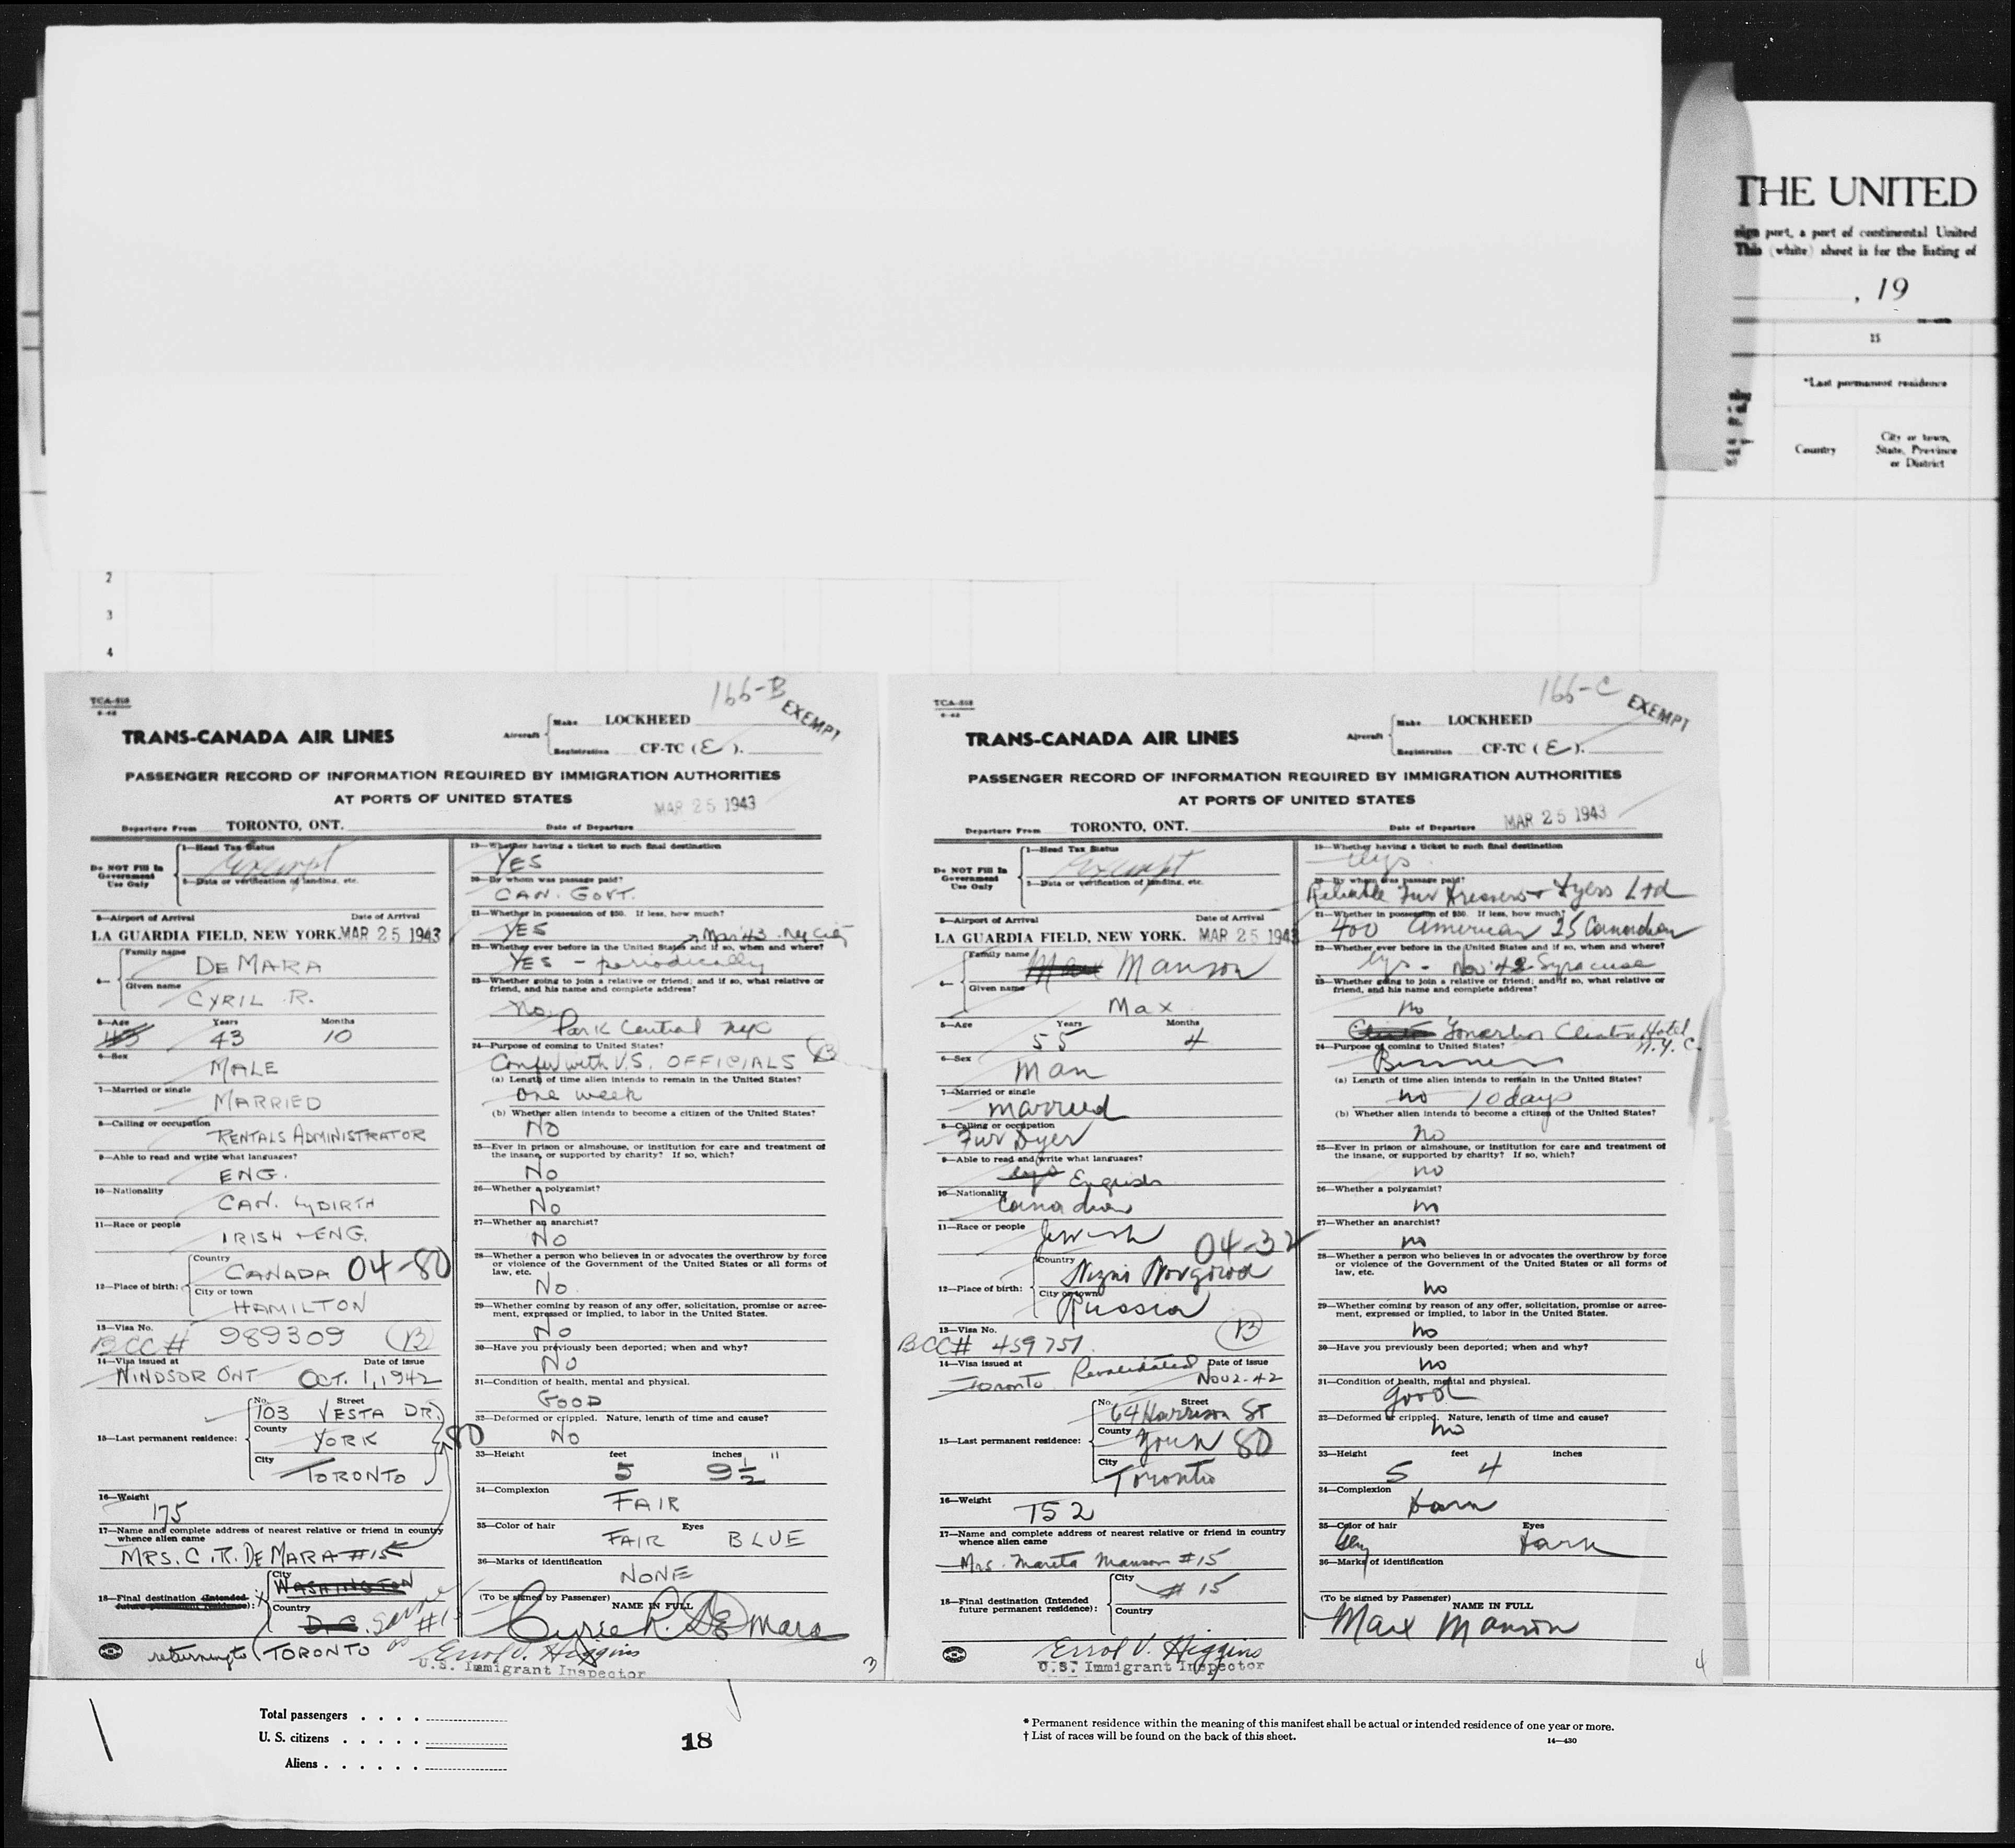 THE UNITED
port, a port of continental United
This (white) sheet is for the listing of
, 19
15
*Last permanent residence
Country
City or town,
State, Province
or District
2
3
4
166-B
EXEMPT
TRANS-CANADA AIR LINES
Aircraft
Make LOCKHEED
Registration CF-TC (E).
PASSENGER RECORD OF INFORMATION REQUIRED BY IMMIGRATION AUTHORITIES
AT PORTS OF UNITED STATES
MAR 25 1943
Departure From TORONTO, ONT.
Date of Departure
Do NOT Fill In
Government
Use Only
1—Head Tax Status
Exempt
2—Data or verification of landing, etc.
3—Airport of Arrival Date of Arrival
LA GUARDIA FIELD, NEW YORK. MAR 25 1943
4—
Family name
DEMARA
Given name
CYRIL R.
5—Age Years Months
43 10
6—Sex
MALE
7—Married or single
MARRIED
8—Calling or occupation
RENTALS ADMINISTRATOR
9—Able to read and write what languages?
ENG.
10—Nationality
CAN. by BIRTH
11—Race or people
IRISH + ENG.
12—Place of birth:
Country
CANADA 04-80
City or town
HAMILTON
13—Visa No.
BCC# 989309 B
14—Visa issued at Date of issue
WINDSOR ONT OCT. 1, 1942
15—Last permanent residence:
No. Street
103 VESTA DR.
County
YORK 80
City
TORONTO
16—Weight
175
17—Name and complete address of nearest relative or friend in country
whence alien came
MRS. C. R. DE MARA #15
18—Final destination (Intended
future permanent residence):
City
WASHINGTON
Country
D.C. same as #15
returning to TORONTO
19—Whether having a ticket to such final destination
YES
20—By whom was passage paid?
CAN. GOVT.
21—Whether in possession of $50. If less, how much?
YES
Mar '43 - NY City
22—Whether ever before in the United States and if so, when and where?
YES - periodically
23—Whether going to join a relative or friend; and if so, what relative or
friend, and his name and complete address?
No
Park Central NYC
24—Purpose of coming to United States?
Confer with U.S. OFFICIALS B
(a) Length of time alien intends to remain in the United States?
one week
(b) Whether alien intends to become a citizen of the United States?
NO
25—Ever in prison or almshouse, or institution for care and treatment of
the insane, or supported by charity? If so, which?
NO
26—Whether a polygamist?
NO
27—Whether an anarchist?
NO
28—Whether a person who believes in or advocates the overthrow by force
or violence of the Government of the United States or all forms of
law, etc.
NO.
29—Whether coming by reason of any offer, solicitation, promise or agree-
ment, expressed or implied, to labor in the United States.
NO
30—Have you previously been deported; when and why?
NO
31—Condition of health, mental and physical.
GOOD
32—Deformed or crippled. Nature, length of time and cause?
NO
33—Height feet inches
5 9½"
34—Complexion
FAIR
35—Color of hair Eyes
FAIR BLUE
36—Marks of identification
NONE
(To be signed by Passenger)
NAME IN FULL
Cyril R. DeMara
Errol V. Higgins
U.S. Immigrant Inspector
3
166-C
EXEMPT
TCA-518
TRANS-CANADA AIR LINES
Aircraft
Make LOCKHEED
Registration CF-TC (E).
PASSENGER RECORD OF INFORMATION REQUIRED BY IMMIGRATION AUTHORITIES
AT PORTS OF UNITED STATES
MAR 25 1943
Departure From TORONTO, ONT.
Date of Departure
Do NOT Fill In
Government
Use Only
1—Head Tax Status
Exempt
2—Data or verification of landing, etc.
3—Airport of Arrival Date of Arrival
LA GUARDIA FIELD, NEW YORK. MAR 25 1943
4—
Family name
Max Manson
Given name
Max
5—Age Years Months
55 4
6—Sex
Man
7—Married or single
married
8—Calling or occupation
Fur Dyer
9—Able to read and write what languages?
yes English
10—Nationality
Canadian
11—Race or people
Jewish
04-32
12—Place of birth:
Country
Nizni Novgorod
City or town
Russia
13—Visa No.
BCC# 459751 B
14—Visa issued at Date of issue
Toronto Revalidated Nov 2-42
15—Last permanent residence:
No. Street
64 Harrison St
County
York 80
City
Toronto
16—Weight
152
17—Name and complete address of nearest relative or friend in country
whence alien came
Mrs. Mareta Manson #15
18—Final destination (Intended
future permanent residence):
City
# 15
Country
19—Whether having a ticket to such final destination
yes
20—By whom was passage paid?
Reliable Fur Dressers + Dyers Ltd
21—Whether in possession of $50. If less, how much?
400 American 25 Canadian
22—Whether ever before in the United States and if so, when and where?
yes - Nov '42 Syracuse
23—Whether going to join a relative or friend; and if so, what relative or
friend, and his name and complete address?
no
Clinton Hotel
N.Y.C.
24—Purpose of coming to United States?
Business
(a) Length of time alien intends to remain in the United States?
no 10 days
(b) Whether alien intends to become a citizen of the United States?
no
25—Ever in prison or almshouse, or institution for care and treatment of
the insane, or supported by charity? If so, which?
no
26—Whether a polygamist?
no
27—Whether an anarchist?
no
28—Whether a person who believes in or advocates the overthrow by force
or violence of the Government of the United States or all forms of
law, etc.
no
29—Whether coming by reason of any offer, solicitation, promise or agree-
ment, expressed or implied, to labor in the United States.
no
30—Have you previously been deported; when and why?
no
31—Condition of health, mental and physical.
good
32—Deformed or crippled. Nature, length of time and cause?
no
33—Height feet inches
5 4
34—Complexion
Dark
35—Color of hair Eyes
Dark
36—Marks of identification
(To be signed by Passenger)
NAME IN FULL
Max Manson
Errol V. Higgins
U.S. Immigrant Inspector
4
Total passengers
U. S. citizens
Aliens
18
* Permanent residence within the meaning of this manifest shall be actual or intended residence of one year or more.
† List of races will be found on the back of this sheet.
14—430